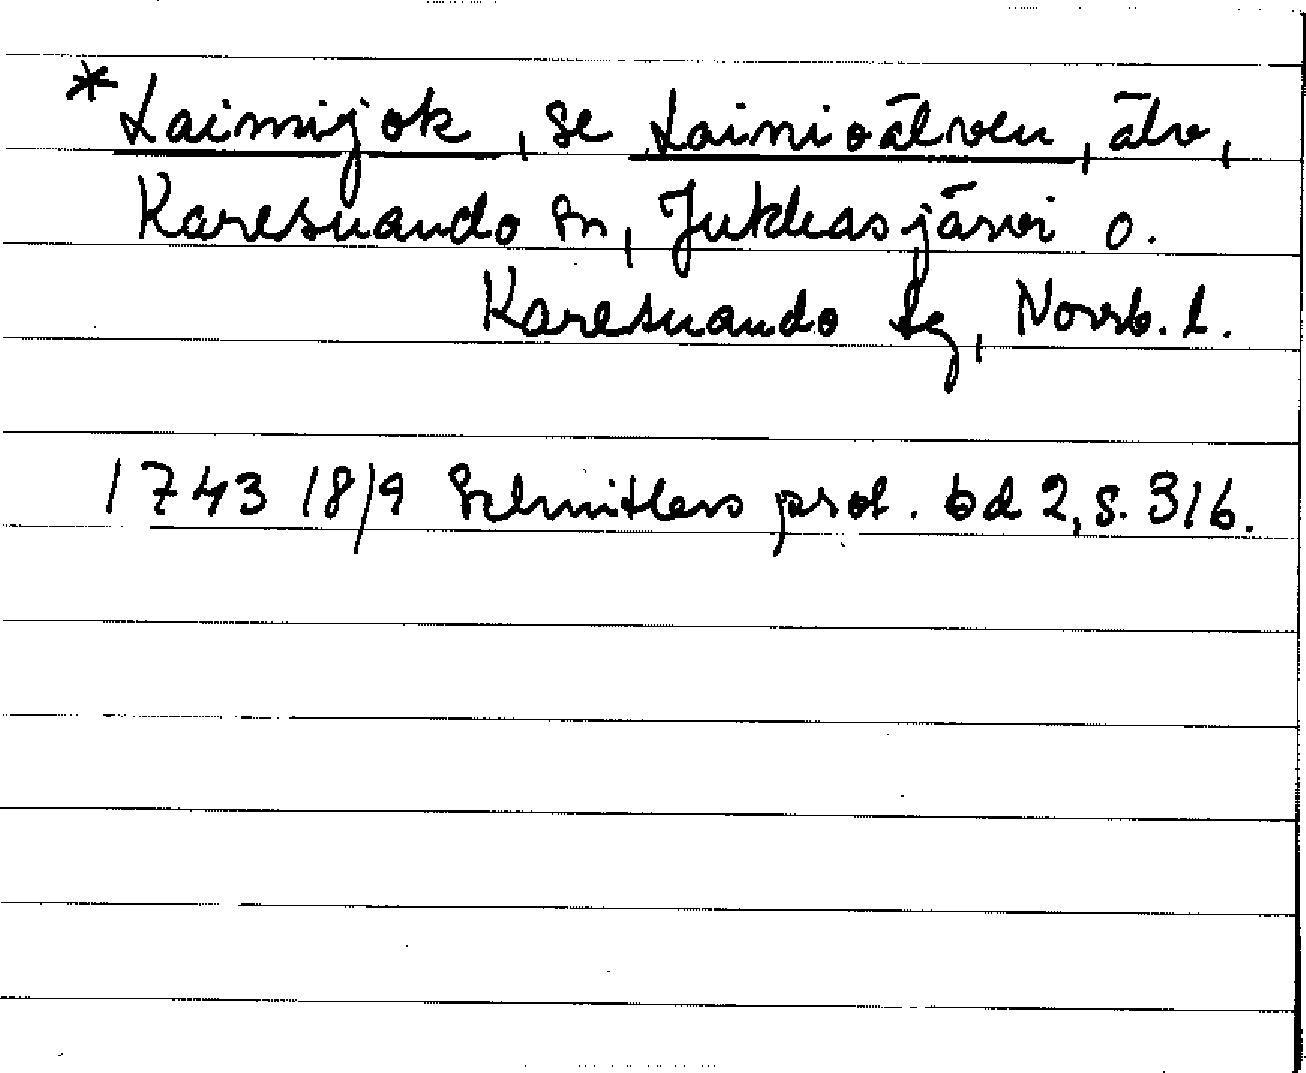 *Laimijok, se Lainioälven, älv,
Karesuando sn, Jukkasjärvi o.
Karesuando tg, Norrb. l.
1743 18/9 Schnitlers prot. bd 2, s. 316.